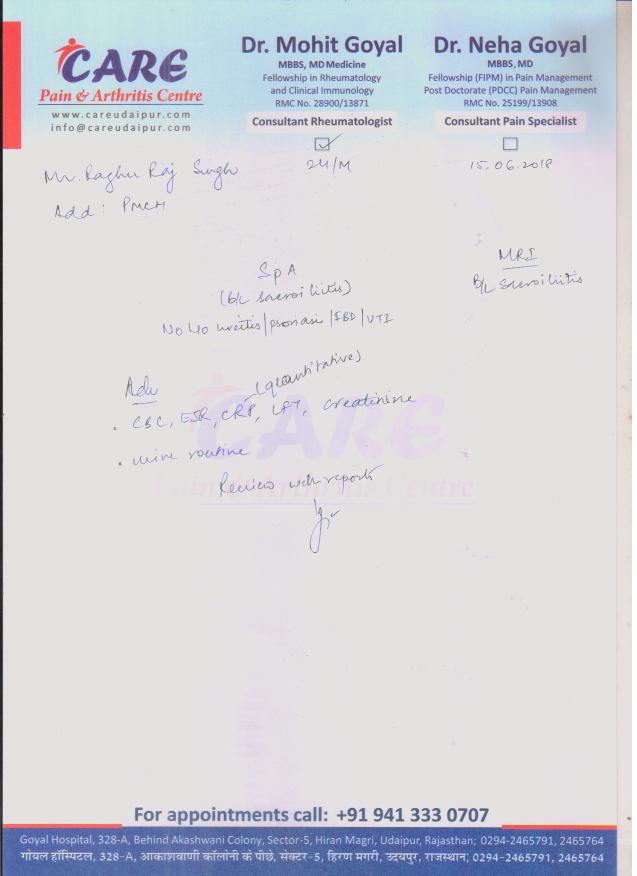 CARE
Pain & Arthritis Centre
www.careudaipur.com
info@careudaipur.com
Dr. Mohit Goyal
MBBS, MD Medicine
Fellowship in Rheumatology
and Clinical Immunology
RMC No. 28900/13871
Consultant Rheumatologist
Dr. Neha Goyal
MBBS, MD
Fellowship (FIPM) in Pain Management
Post Doctorate (PDCC) Pain Management
RMC No. 25199/13908
Consultant Pain Specialist
Mr. Raghu Raj Singh
24/M
15.06.2018
Add: PMCH
SpA
(b/L sacroiliitis)
No H/o uveitis/psoriasis/IBD/UTI
MRI
B/L Sacroiliitis
Adv
(quantitative)
. CBC, ESR, CRP, LFT, creatinine
. urine routine
Review with reports
CARE
Pain & Arthritis Centre
For appointments call: +91 941 333 0707
Goyal Hospital, 328-A, Behind Akashwani Colony, Sector-5, Hiran Magri, Udaipur, Rajasthan; 0294-2465791, 2465764
गोयल हॉस्पिटल, 328-A, आकाशवाणी कॉलोनी के पीछे, सेक्टर-5, हिरण मगरी, उदयपुर, राजस्थान; 0294-2465791, 2465764